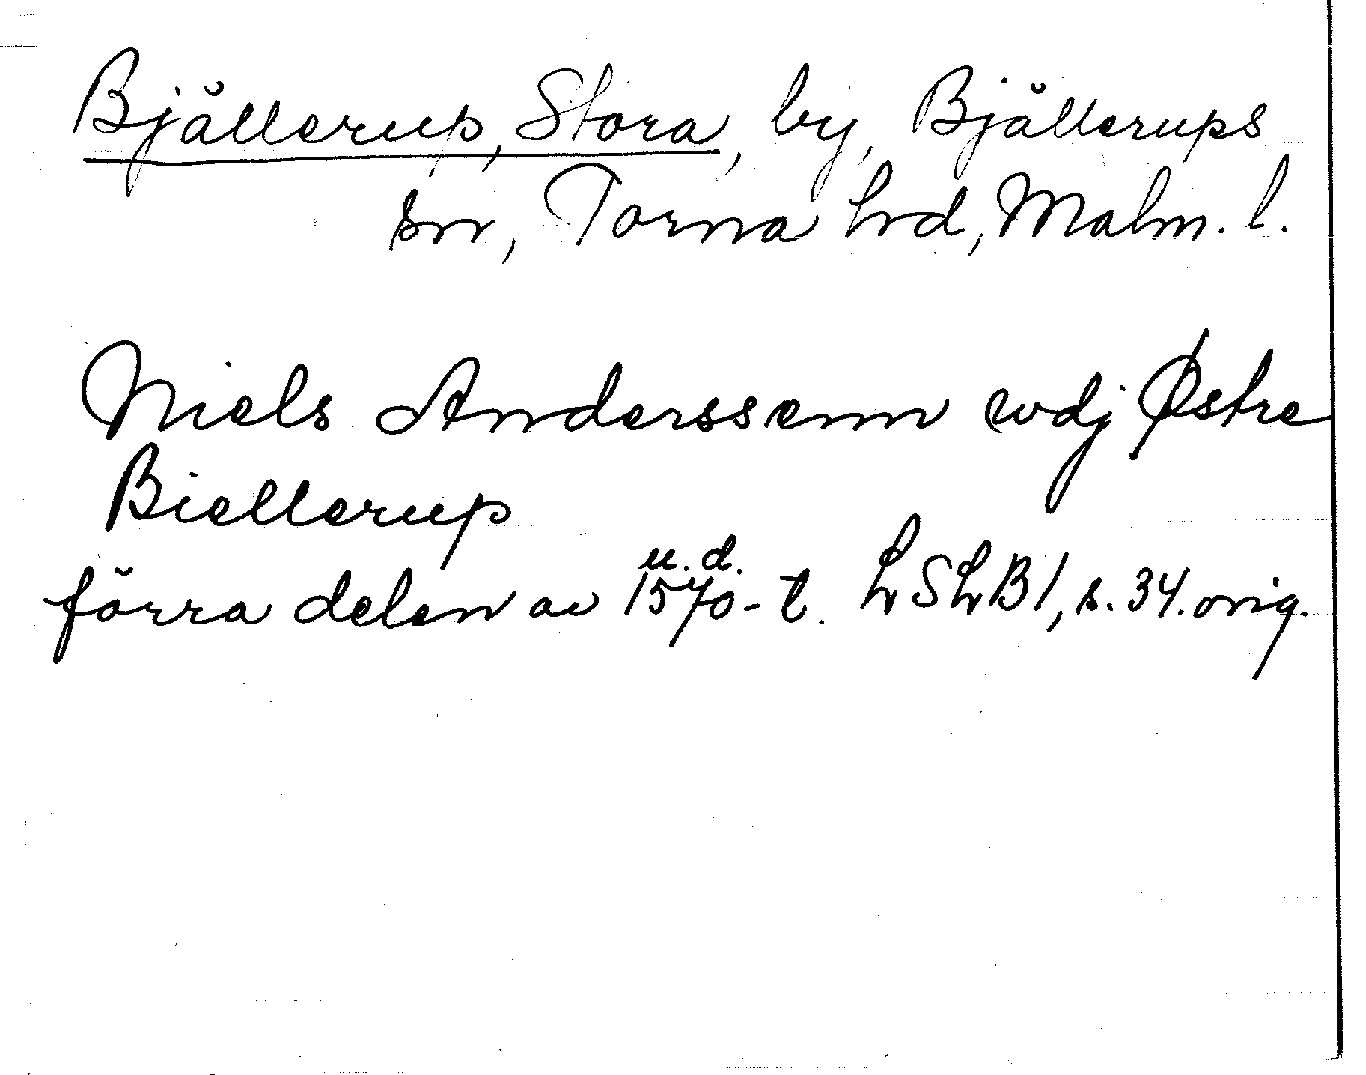 Bjällerup, Stora, by, Bjällerups
sn, Torna hd, Malm. l.
Niels Anderssenn wdj Østre
Biellerup
u. d.
förra delen av 1570-t. LSLB1, s. 34. orig.